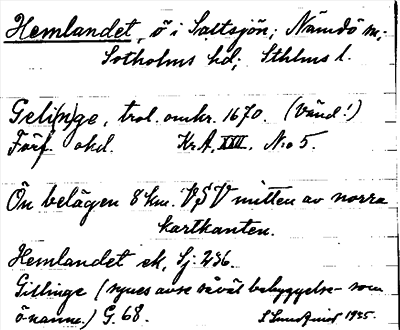 Hemlandet, ö i Saltsjön; Nämdö sn;
Sotholms hd; Sthlms l.
Geli(n)ge, trol. omkr. 1670. (Vänd!)
Förf. okd. Kr.A. XXII. No 5.
Ön belägen 8 km. VSV mitten av norra
kartkanten.
Hemlandet ek, Sj. 236.
Gillinge (synes avse såväl bebyggelse- som
önamn.) G. 68. S Lundqvist 1935